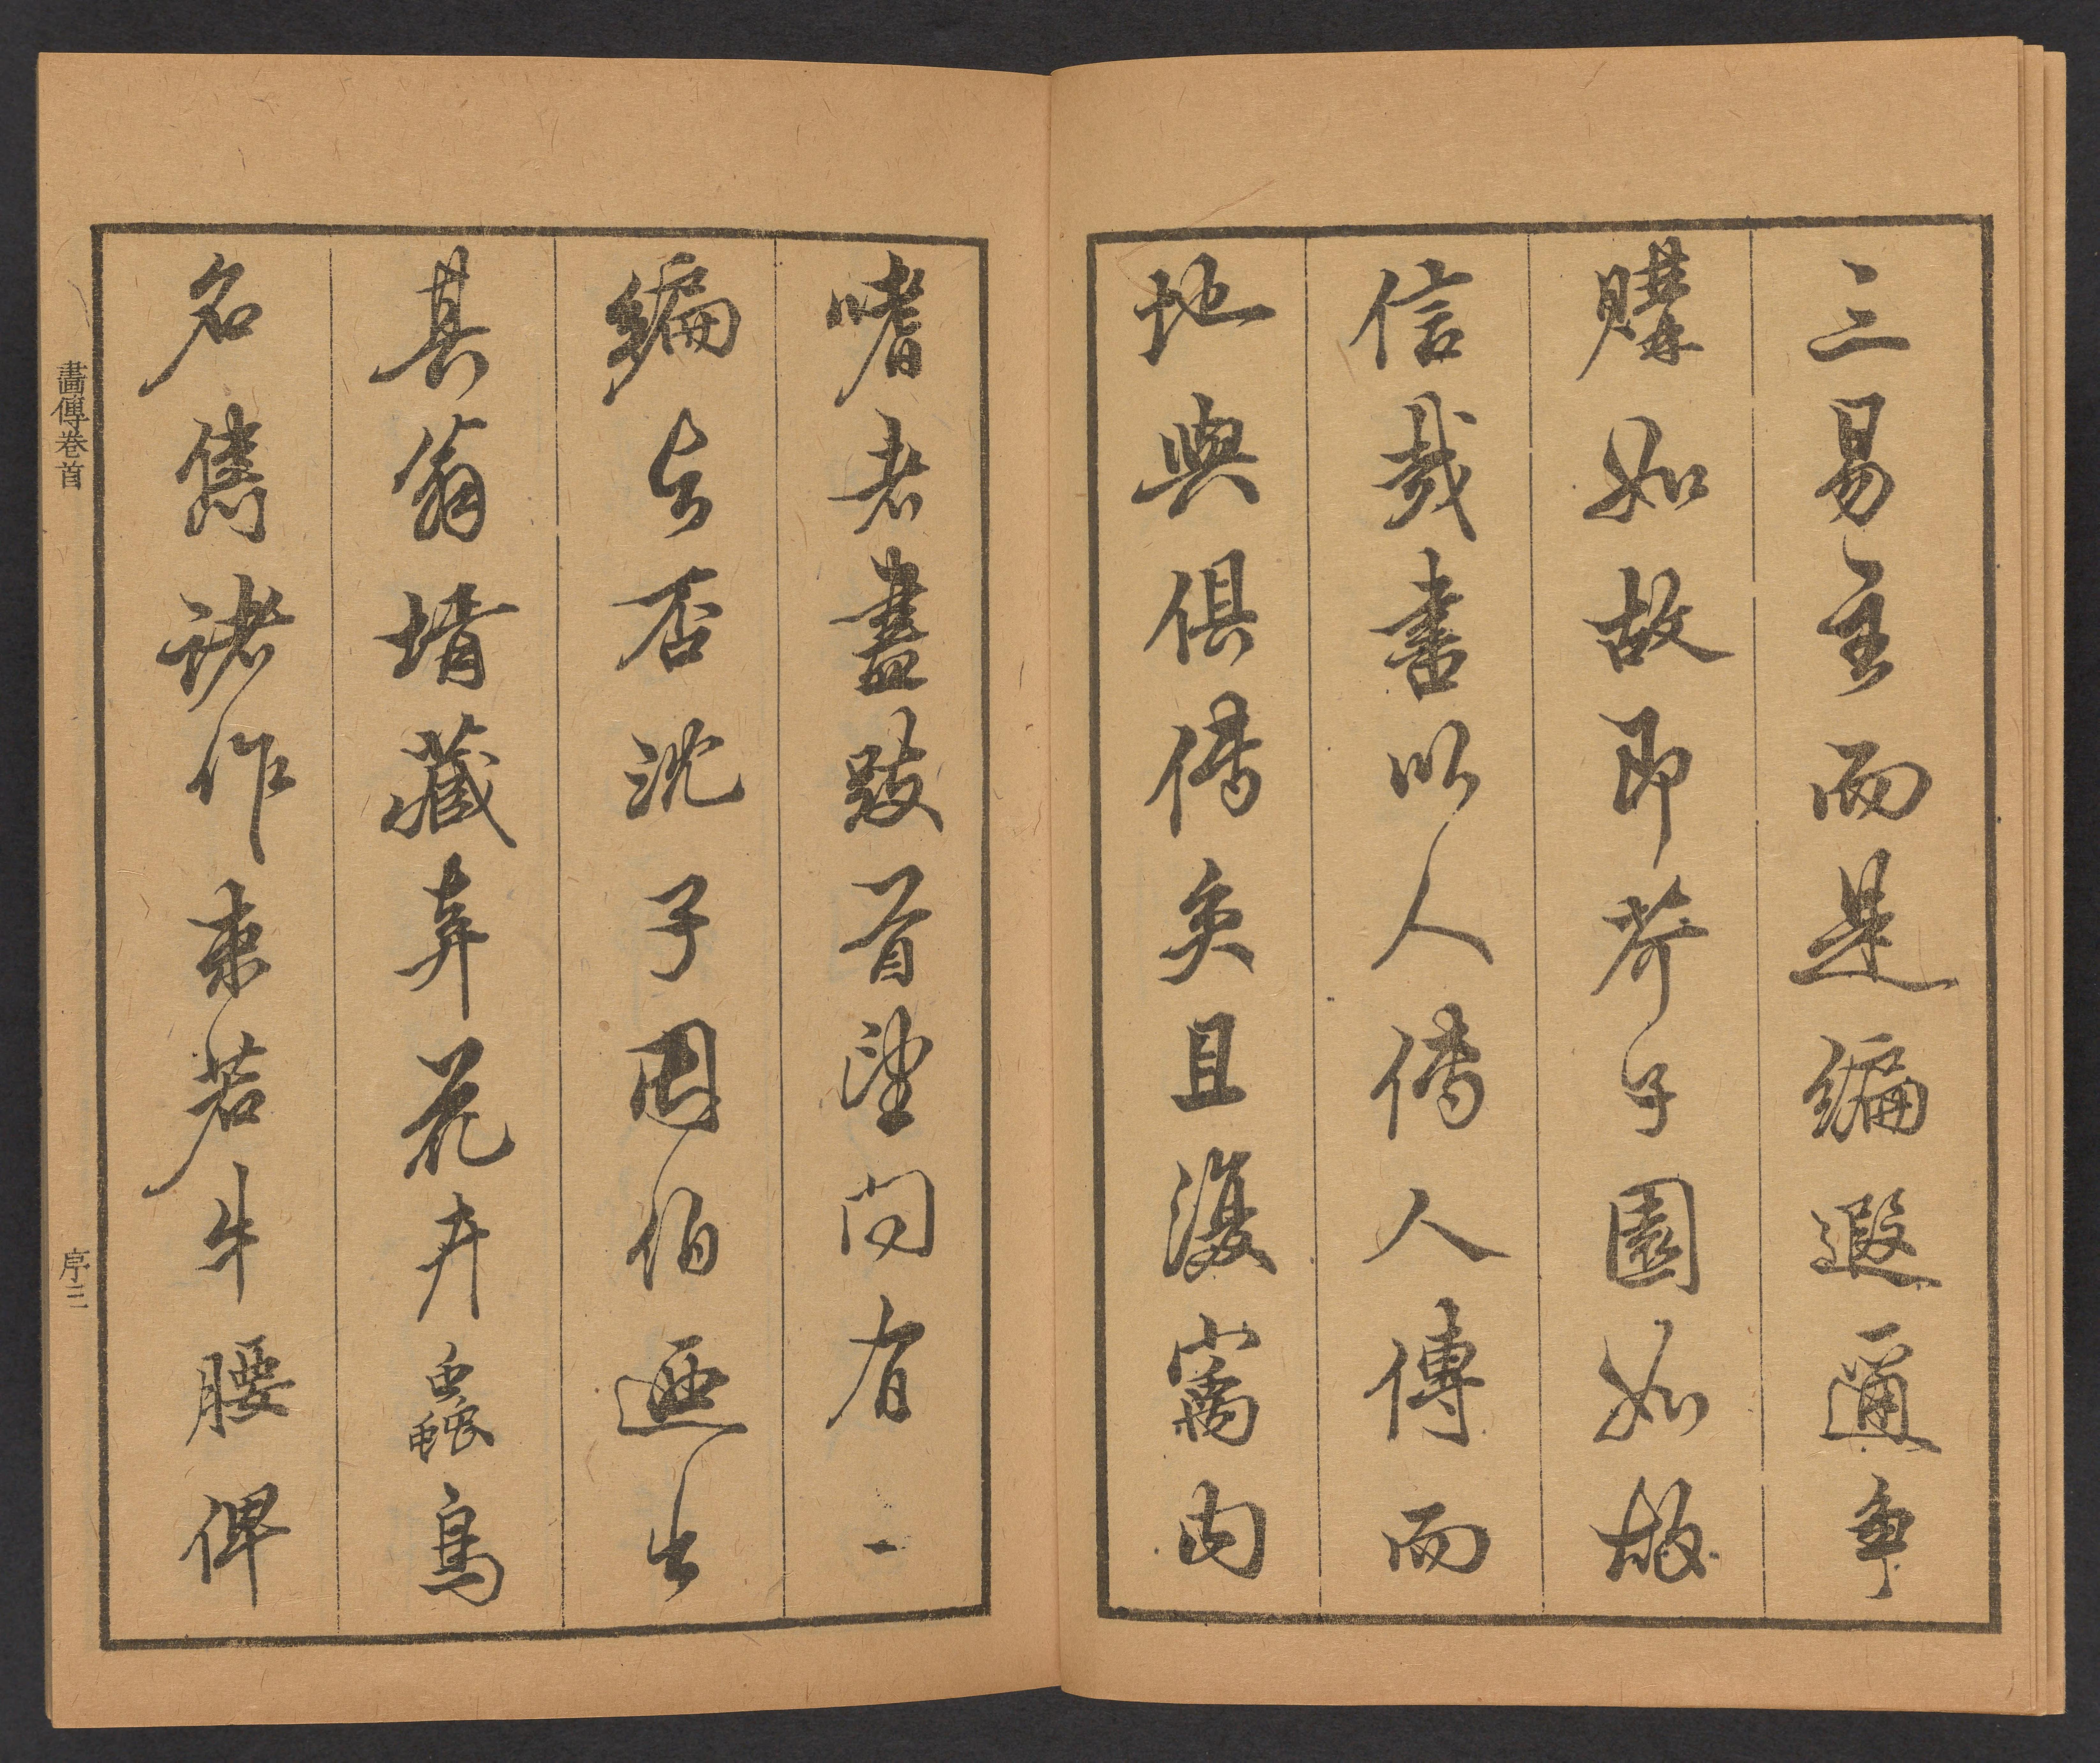 三易主而是編遐邇爭
購如故即芥子園如故
信哉書以人傳人傳而
地與俱傳矣且復寓內
嗜者盡跂首望問有二
編與否沈子因伯迺出
其翁壻藏弆花卉蟲鳥
名雋諸作束若牛腰俾
畫傳卷首
序三